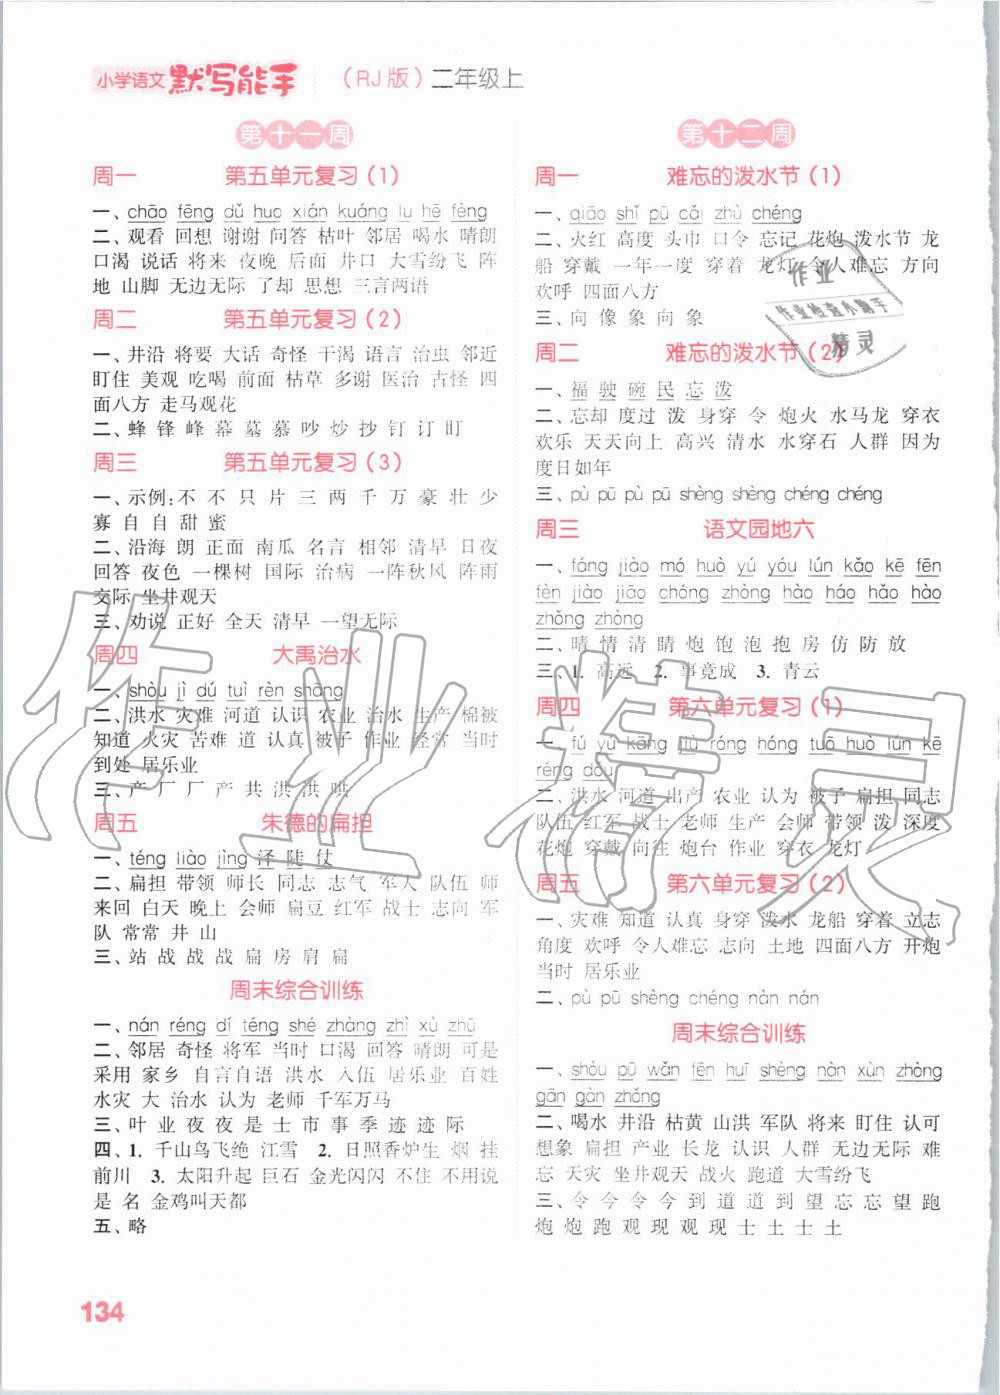 小学语文 默写能手 (RJ版) 二年级上
第十一周
周一 第五单元复习(1)
一、chāo fēng dǔ huo xián kuáng lu hē fèng
二、观看 回想 谢谢 问答 枯叶 邻居 喝水 晴朗
口渴 说话 将来 夜晚 后面 井口 大雪纷飞 阵
地 山脚 无边无际 了却 思想 三言两语
周二 第五单元复习(2)
一、井沿 将要 大话 奇怪 干渴 语言 治虫 邻近
盯住 美观 吃喝 前面 枯草 多谢 医治 古怪 四
面八方 走马观花
二、蜂 锋 峰 幕 墓 慕 吵 炒 抄 钉 订 盯
周三 第五单元复习(3)
一、示例:不 不 只 片 三 两 千 万 豪 壮 少
寡 自 自 甜 蜜
二、沿海 朗 正面 南瓜 名言 相邻 清早 日夜
回答 夜色 一棵树 国际 治病 一阵秋风 阵雨
交际 坐井观天
三、劝说 正好 全天 清早 一望无际
周四 大禹治水
一、shòu jì dú tuì rèn shāng
二、洪水 灾难 河道 认识 农业 治水 生产 棉被
知道 火灾 苦难 道 认真 被子 作业 经常 当时
到处 居乐业
三、产 厂 厂 产 共 洪 洪 哄
周五 朱德的扁担
一、téng liào jìng 泽 陡 仗
二、扁担 带领 师长 同志 志气 军人 队伍 师
来回 白天 晚上 会师 扁豆 红军 战士 志向 军
队 常常 井 山
三、站 战 战 战 扁 房 肩 扁
周末综合训练
一、nán réng dí téng shé zhàng zhì xù zhū
二、邻居 奇怪 将军 当时 口渴 回答 晴朗 可是
采用 家乡 自言自语 洪水 入伍 居乐业 百姓
水灾 大 治水 认为 老师 千军万马
三、叶 业 夜 夜 是 士 市 事 季 迹 迹 际
四、1. 千山鸟飞绝 江雪 2. 日照香炉生 烟 挂
前川 3. 太阳升起 巨石 金光闪闪 不住 不用说
是 名 金鸡叫天都
五、略
134
第十二周
周一 难忘的泼水节(1)
一、qiāo shǐ pū cǎi zhù chéng
二、火红 高度 头巾 口令 忘记 花炮 泼水节 龙
船 穿戴 一年一度 穿着 龙灯 令人难忘 方向
欢呼 四面八方
三、向 像 象 向 象
周二 难忘的泼水节(2)
一、福 驶 碗 民 忘 泼
二、忘却 度过 泼 身穿 令 炮火 水马龙 穿衣
欢乐 天天向上 高兴 清水 水穿石 人群 因为
度日如年
三、pù pū pū pù shèng shèng chéng chéng
周三 语文园地六
一、fáng jiào mó huó yú yóu lún kǎo kē fēn
fèn jiào jiāo chóng zhòng hào háo hǎo hào
zhǒng zhòng
二、晴 情 清 睛 炮 饱 泡 抱 房 仿 防 放
三、1. 高远 2. 事竟成 3. 青云
周四 第六单元复习(1)
一、fú yù kāng jù róng hóng tuō huò lún kē
réng dǒu
二、洪水 河道 出产 农业 认为 被子 扁担 同志
队伍 红军 战士 老师 生产 会师 带领 泼 深度
花炮 穿戴 向往 炮台 作业 穿衣 龙灯
周五 第六单元复习(2)
一、灾难 知道 认真 身穿 泼水 龙船 穿着 立志
角度 欢呼 令人难忘 志向 土地 四面八方 开炮
当时 居乐业
二、pù pū shèng chéng nàn nán
周末综合训练
一、shòu pū wǎn fēn huī shèng nàn xùn zhòng
gān gàn zhǒng
二、喝水 井沿 枯黄 山洪 军队 将来 盯住 认可
想象 扁担 产业 长龙 认识 人群 无边无际 难
忘 天灾 坐井观天 战火 跑道 大雪纷飞
三、令 今 令 今 到 道 道 到 望 忘 忘 望 跑
炮 炮 跑 观 现 观 现 士 土 士 土
作业
作业检查小助手
精灵
作业精灵